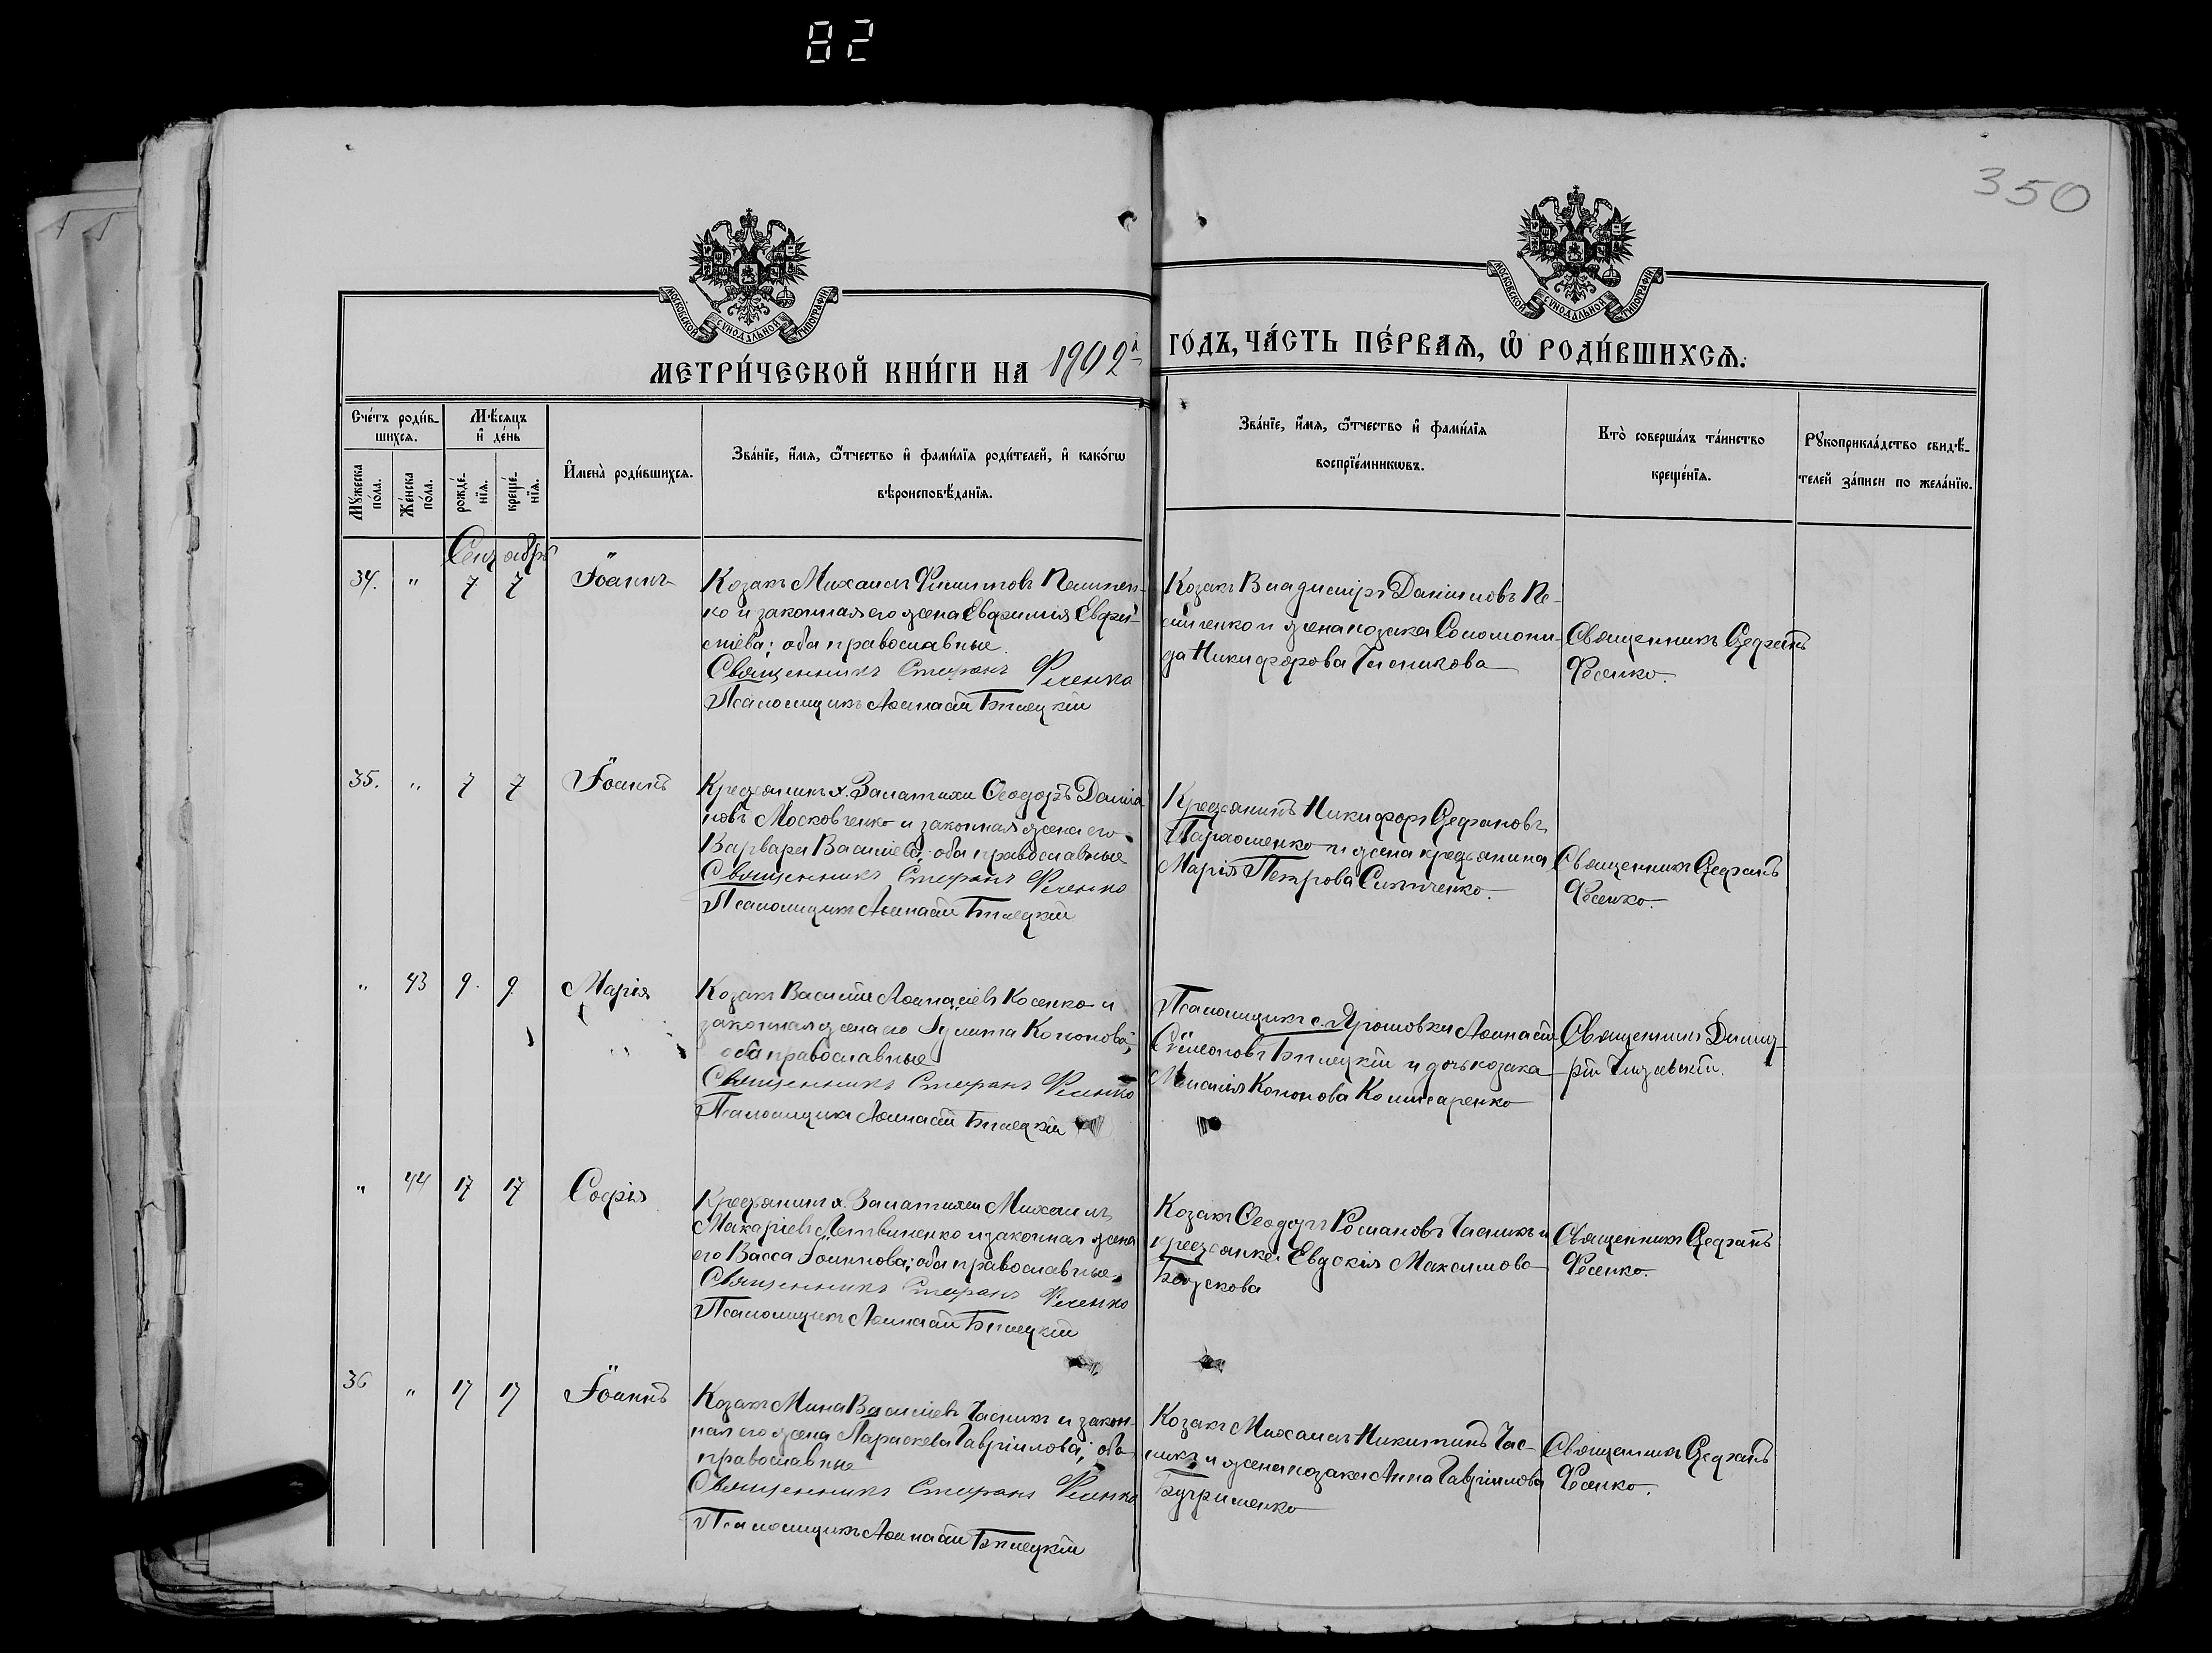 82
350
МОСКОВСКОЙ СѴНОДАЛЬНОЙ ТИПОГРАФІИ
МОСКОВСКОЙ СѴНОДАЛЬНОЙ ТИПОГРАФІИ
МЕТРИ́ЧЕСКОЙ КНИ́ГИ НА 1902й ГО́ДЪ, ЧА́СТЬ ПЕ́РВАѦ, Ѡ РОДИ́ВШИХСѦ:
Сче́тъ роди́в-
шихсѧ.
Мѣ́сѧцъ
и҆ де́нь
Мꙋ́жеска
по́ла.
Же́нска
по́ла.
рожде́-
нїѧ.
креще́-
нїѧ.
И҆мена̀ роди́вшихсѧ.
Зва́нїе, и҆́мѧ, ѻ҆́тчество и҆ фами́лїѧ роди́телей, и҆ како́гѡ
вѣроисповѣ́данїѧ.
Зва́нїе, и҆́мѧ, ѻ҆́тчество и҆ фами́лїѧ
воспрїе́мникѡвъ.
Кто̀ соверша́лъ та́инство
креще́нїѧ.
Рꙋкоприкла́дство свидѣ́-
телей за́писи по жела́нїю.
Сентябрь
34. " 7 7 Іоаннъ
Козакъ Михаилъ Филиповъ
ко и законная его жена Евфимія Евфи-
міева; оба православные.
Священникъ Стефанъ Фесенко
Псаломщикъ Аѳанасій Бѣлецкій
Козакъ Владиміръ Даніиловъ Пе-
и жена козака Соломони-
да Никифорова Часникова
Священникъ Стефанъ
Фесенко.
35. " 7 7 Іоаннъ
Крестьянинъ х. Залатихи Ѳеодоръ Даміа
новъ Московченко и законная жена его
Варвара Василіева; оба православные
Священникъ Стефанъ Фесенко
Псаломщикъ Аѳанасій Бѣлецкій
Крестьянинъ Никифоръ Стефановъ
Пархоменко и жена крестьянина
Марія Петрова Ситниченко.
Священникъ Стефанъ
Фесенко.
" 43 9. 9 Марія
Козакъ Василій Аѳанасіевъ Косенко и
законная жена его Іулита Кононова;
оба православные
Священникъ Стефанъ Фесенко
Псаломщикъ Аѳанасій Бѣлецкій
Псаломщикъ с. Ярошовки Аѳанасій
Симеоновъ Бѣлецкій и дочь козака
Меланія Кононова Комисаренко
Священникъ Димит-
рій
" 44 17 17 Софія
Крестьянинъ х. Залатихи Михаилъ
Макаріевъ Литвиненко и законная жена
его Васса Іоаннова; оба православные.
Священникъ Стефанъ Фесенко
Псаломщикъ Аѳанасій Бѣлецкій
Козакъ Ѳеодоръ Романовъ Часникъ и
крестьянка Евдокія Максимова
Священникъ Стефанъ
Фесенко.
36 " 17 17 Іоаннъ
Козакъ Мина Василіевъ Часникъ и закон-
ная его жена Параскева Гавріилова; оба
православные
Священникъ Стефанъ Фесенко
Псаломщикъ Аѳанасій Бѣлецкій
Козакъ Михаилъ Никитинъ Час-
никъ и жена козака Анна Гавріилова
Бугрименко
Священникъ Стефанъ
Фесенко.